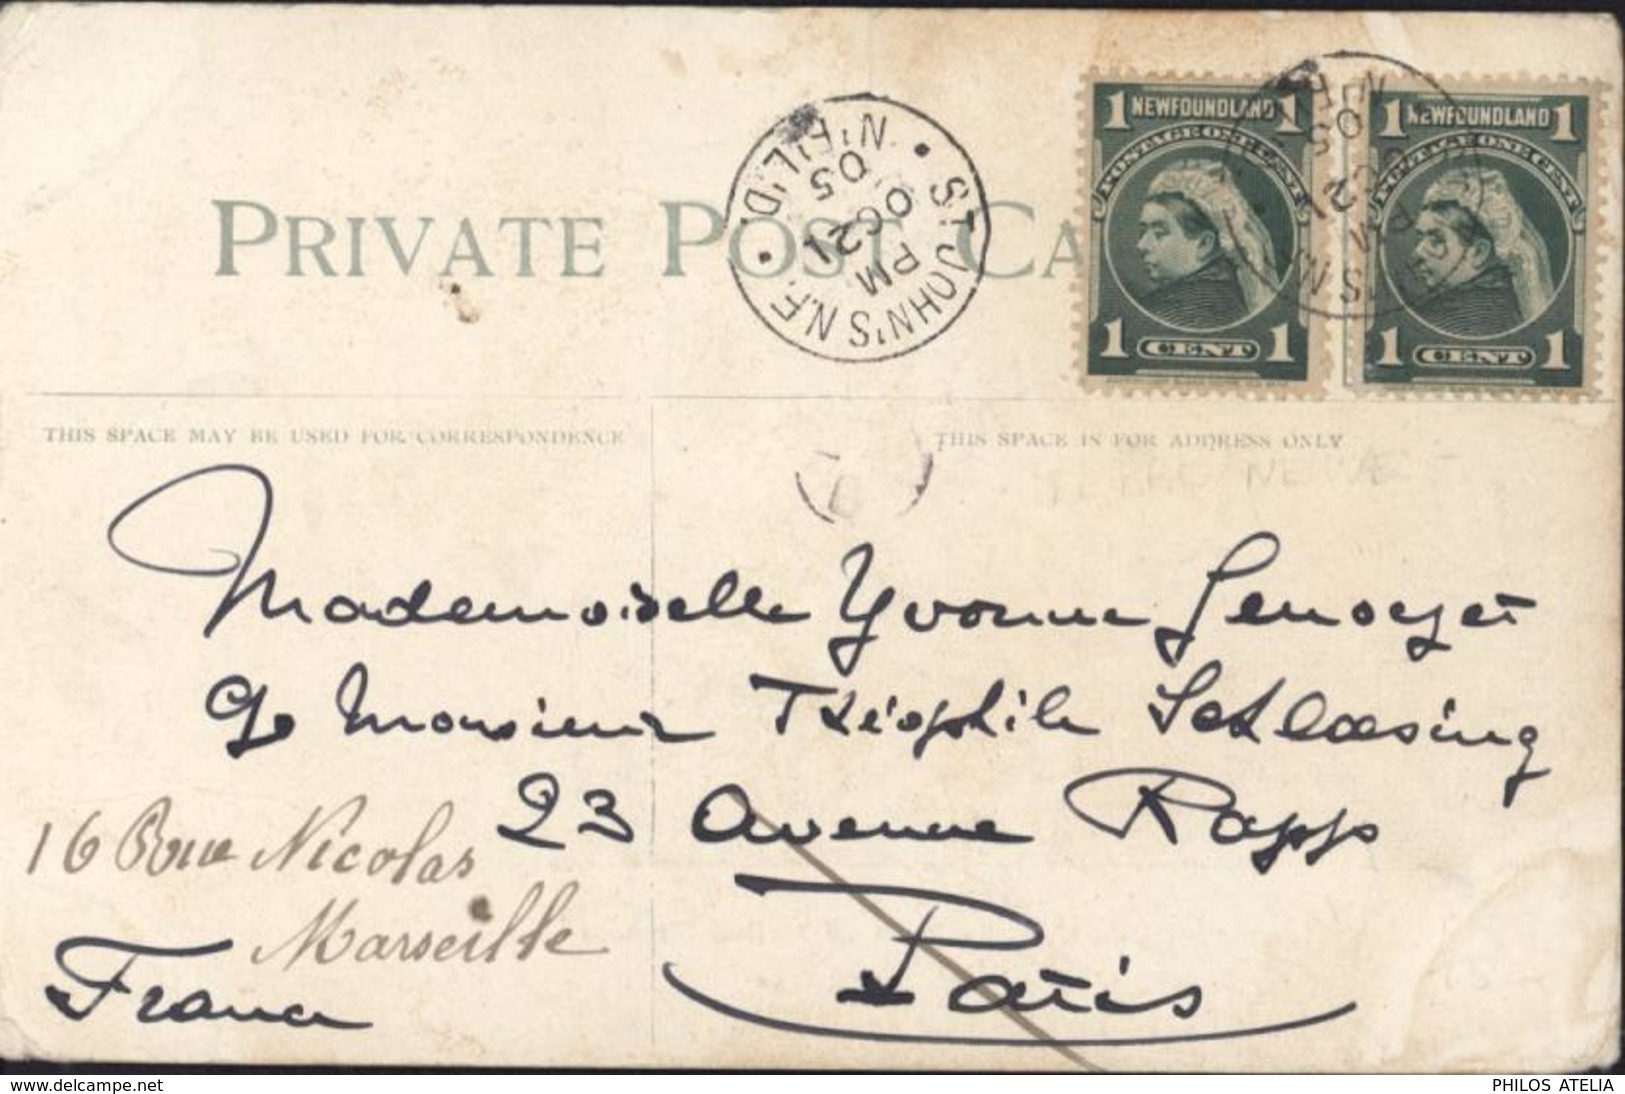 PRIVATE POST CA
ST JOHN'S N.F.
N'F'L'D.
PM
OC 21
05
1 NEWFOUNDLAND 1
POSTAGE ONE CENT
1 CENT 1
1 NEWFOUNDLAND 1
POSTAGE ONE CENT
1 CENT 1
THIS SPACE MAY BE USED FOR CORRESPONDENCE
THIS SPACE IS FOR ADDRESS ONLY
Mademoiselle Yvonne
c/o Monsieur Théophile Schloesing
23 Avenue Rapp
Paris
France
16 Rue Nicolas
Marseille
www.delcampe.net
PHILOS ATELIA